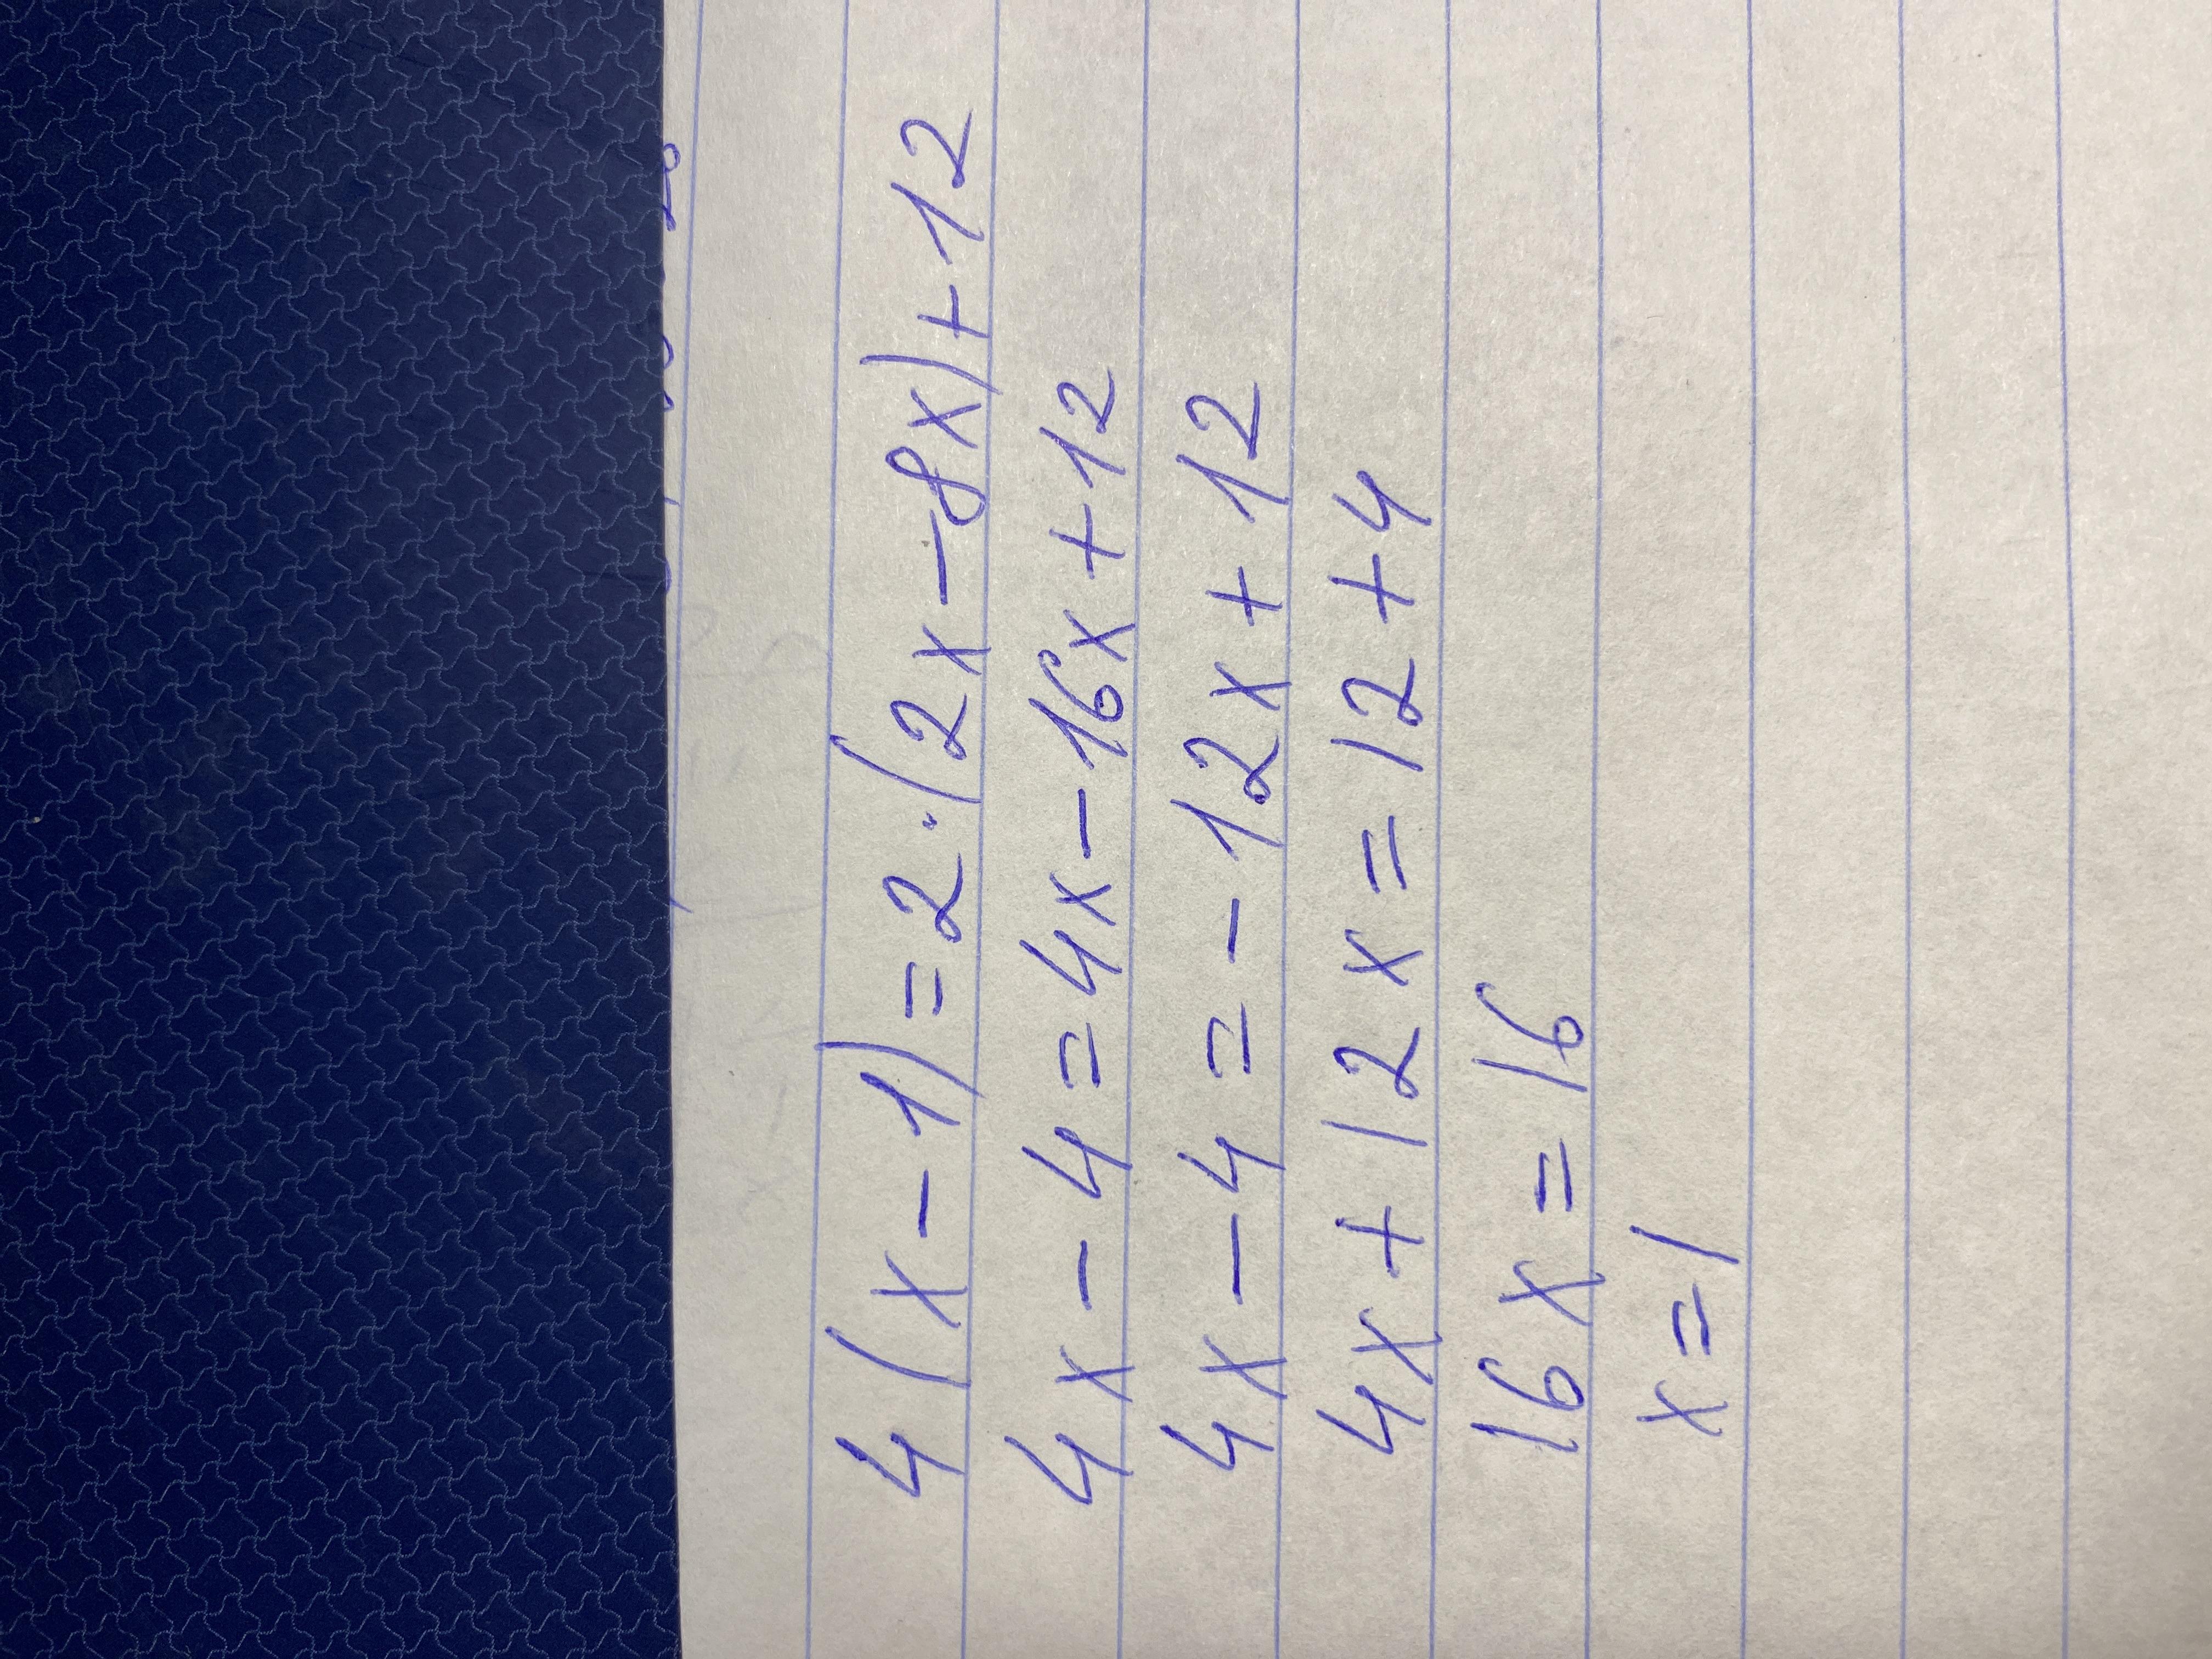 4(x-1)=2·(2x-8x)+12
4x-4=4x-16x+12
4x-4=-12x+12
4x+12x=12+4
16x=16
x=1